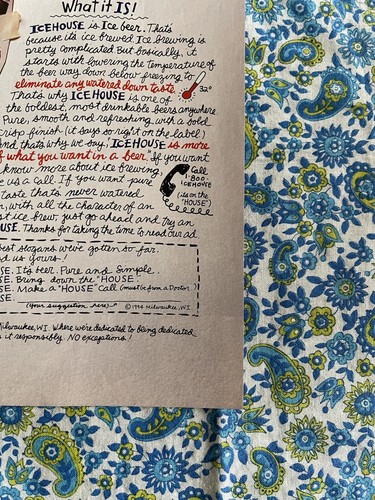 What it IS!
ICEHOUSE is Ice beer. That's
because its ice brewed. Ice brewing is
pretty complicated. But basically, it
starts with lowering the temperature of
the beer way down below freezing to
eliminate any watered down taste.
32°
That's why ICEHOUSE is one of
the boldest, most drinkable beers anywhere
Pure, smooth and refreshing with a bold
crisp finish (it says so right on the label)
and that's why we say, "ICEHOUSE is more
of what you want in a beer." If you want
know more about ice brewing,
e us a call. If you want pure
taste that's never watered
n, with all the character of an
st ice brew, just go ahead and try an
USE. Thanks for taking the time to read our ad.
Call
1-800-
ICEHOUSE
(its on the
"HOUSE")
best slogans we've gotten so far.
d us yours!
SE. Its beer. Pure and Simple.
SE. Bring down the "HOUSE".
SE. Make a "HOUSE" Call (must be from a Doctor)
SE. (Your suggestion here) "
© 1996 Milwaukee, WI.
Milwaukee, WI. Where we're dedicated to being dedicated.
it responsibly. NO exceptions!